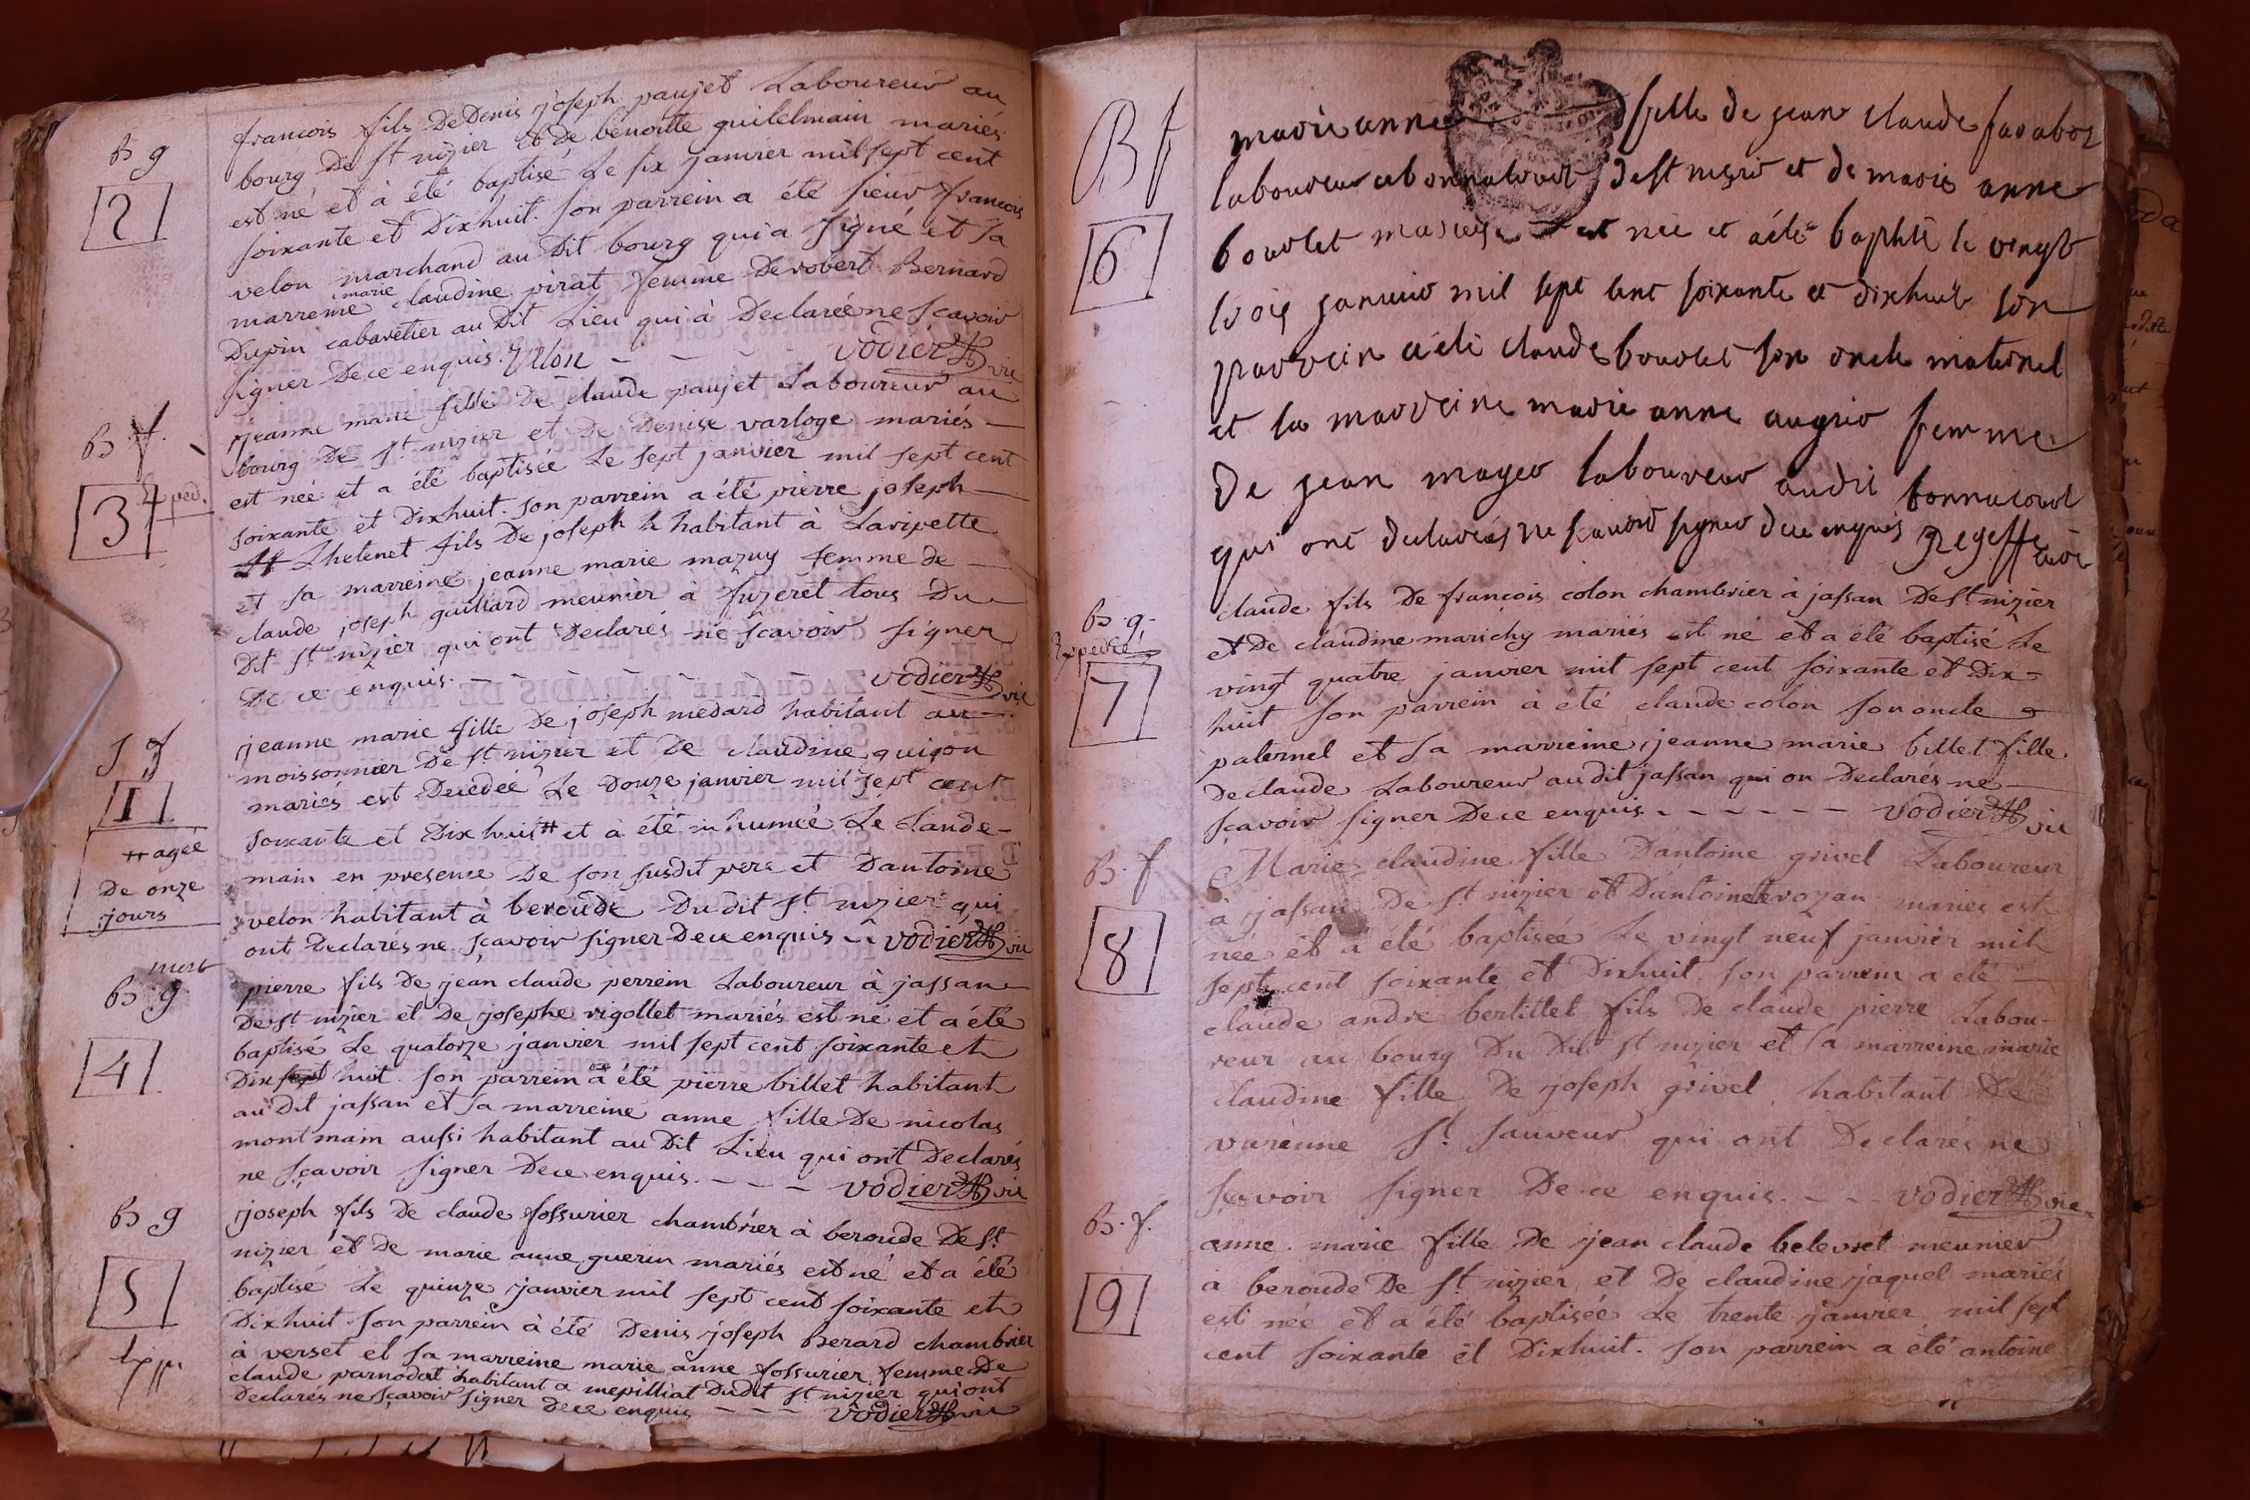 B g
2
francois fils De Denis joseph paujet Laboureur au
bourg De St nizier et de benoitte guilelmain mariés
est né et à été baptisé Le six janvier mil sept cent
soixante et Dixhuit. son parrein a été sieur francois
velon marchand au Dit bourg qui a signé et sa
marreine marie claudine pirat femme De robert Bernard
Dupin cabaretier au Dit Lieu qui à Declarée ne scavoir
signer De ce enquis. Velon - - - - vodier vic
B. f.
3
Exped.
jeanne marie fille De claude paujet Laboureur au
bourg De St nizier et De Denise varloge mariés
est née et a été baptisée Le sept janvier mil sept cent
soixante et Dixhuit. son parrein a été pierre joseph
Lhetenet fils De joseph habitant à Laripette
et sa marreine jeanne marie mazuy femme de
claude joseph guillard meunier à fuzeret tous Du
Dit St nizier qui ont Declarés ne scavoir signer
De ce enquis. - - - - - - vodier vic
S f
1
# agée
De onze
jours
jeanne marie fille De joseph medard habitant au
moissonnier De St nizier et De claudine guigon
mariés est Decedée Le Douze janvier mil sept cent
soixante et Dixhuit # et à été inhumée Le Lande-
main en presence De son susdit pere et Dantoine
velon habitant à beroude Du dit St nizier qui
ont Declarés ne sçavoir signer De ce enquis - - vodier vic
mort
B g
4
pierre fils De jean claude perrein Laboureur à jassan
De St nizier et De josephe rigollet mariés est né et a été
baptisé Le quatorze janvier mil sept cent soixante et
Dix huit. son parrein a été pierre billet habitant
au Dit jassan et sa marreine anne fille De nicolas
montmain aussi habitant au Dit Lieu qui ont Declarés
ne sçavoir signer De ce enquis. - - - vodier vic
B g
5
Exp.
joseph fils De claude fossurier chambrier à beroude De St
nizier et De marie anne guerin mariés est né et a été
baptisé Le quinze janvier mil sept cent soixante et
Dixhuit. son parrein à été Denis joseph Berard chambrier
à verset et sa marreine marie anne fossurier femme De
claude parnodat habitant a mepilliat Dudit St nizier qui ont
Declarés ne sçavoir signer De ce enquis - - - vodier vic
B f
6
marie anne fille de jean claude favabor
laboureur a bonnacourt De St nizier et de marie anne
bourlet mariés est née et a été baptisé le vingt
trois janvier mil sept cent soixante et dixhuit son
parrein a été claude bourlet son oncle maternel
et la marreine marie anne augrio femme
De jean mayer laboureur audit bonnacourt
qui ont declarées ne scavoir signer de ce enquis
B. g.
Expediée
7
claude fils De françois colon chambrier à jassan De St nizier
et De claudine marichy mariés est né et a été baptisé Le
vingt quatre janvier mil sept cent soixante et Dix-
huit son parrein à été claude colon son oncle
paternel et sa marreine jeanne marie billet fille
De claude Laboureur au dit jassan qui on Declarés ne
sçavoir signer De ce enquis. - - - - - - vodier vic
B. f
8
Marie claudine fille Dantoine grivel Laboureur
à jassan De St nizier et Dantoinette vozan mariés est
née et a été baptisée Le vingt neuf janvier mil
sept cent soixante et Dixhuit. son parrein a été
claude andré bertillet fils De claude pierre Labou-
reur au bourg Du Dit St nizier et sa marreine marie
claudine fille De joseph grivel habitant De
varenne St sauveur qui ont Declarés ne
sçavoir signer De ce enquis. - - - vodier vic
B. f.
9
anne marie fille De jean claude belevret meunier
à beroude De St nizier et De claudine jaquet mariés
est née et a été baptisée Le trente janvier mil sept
cent soixante et Dixhuit. son parrein a été antoine